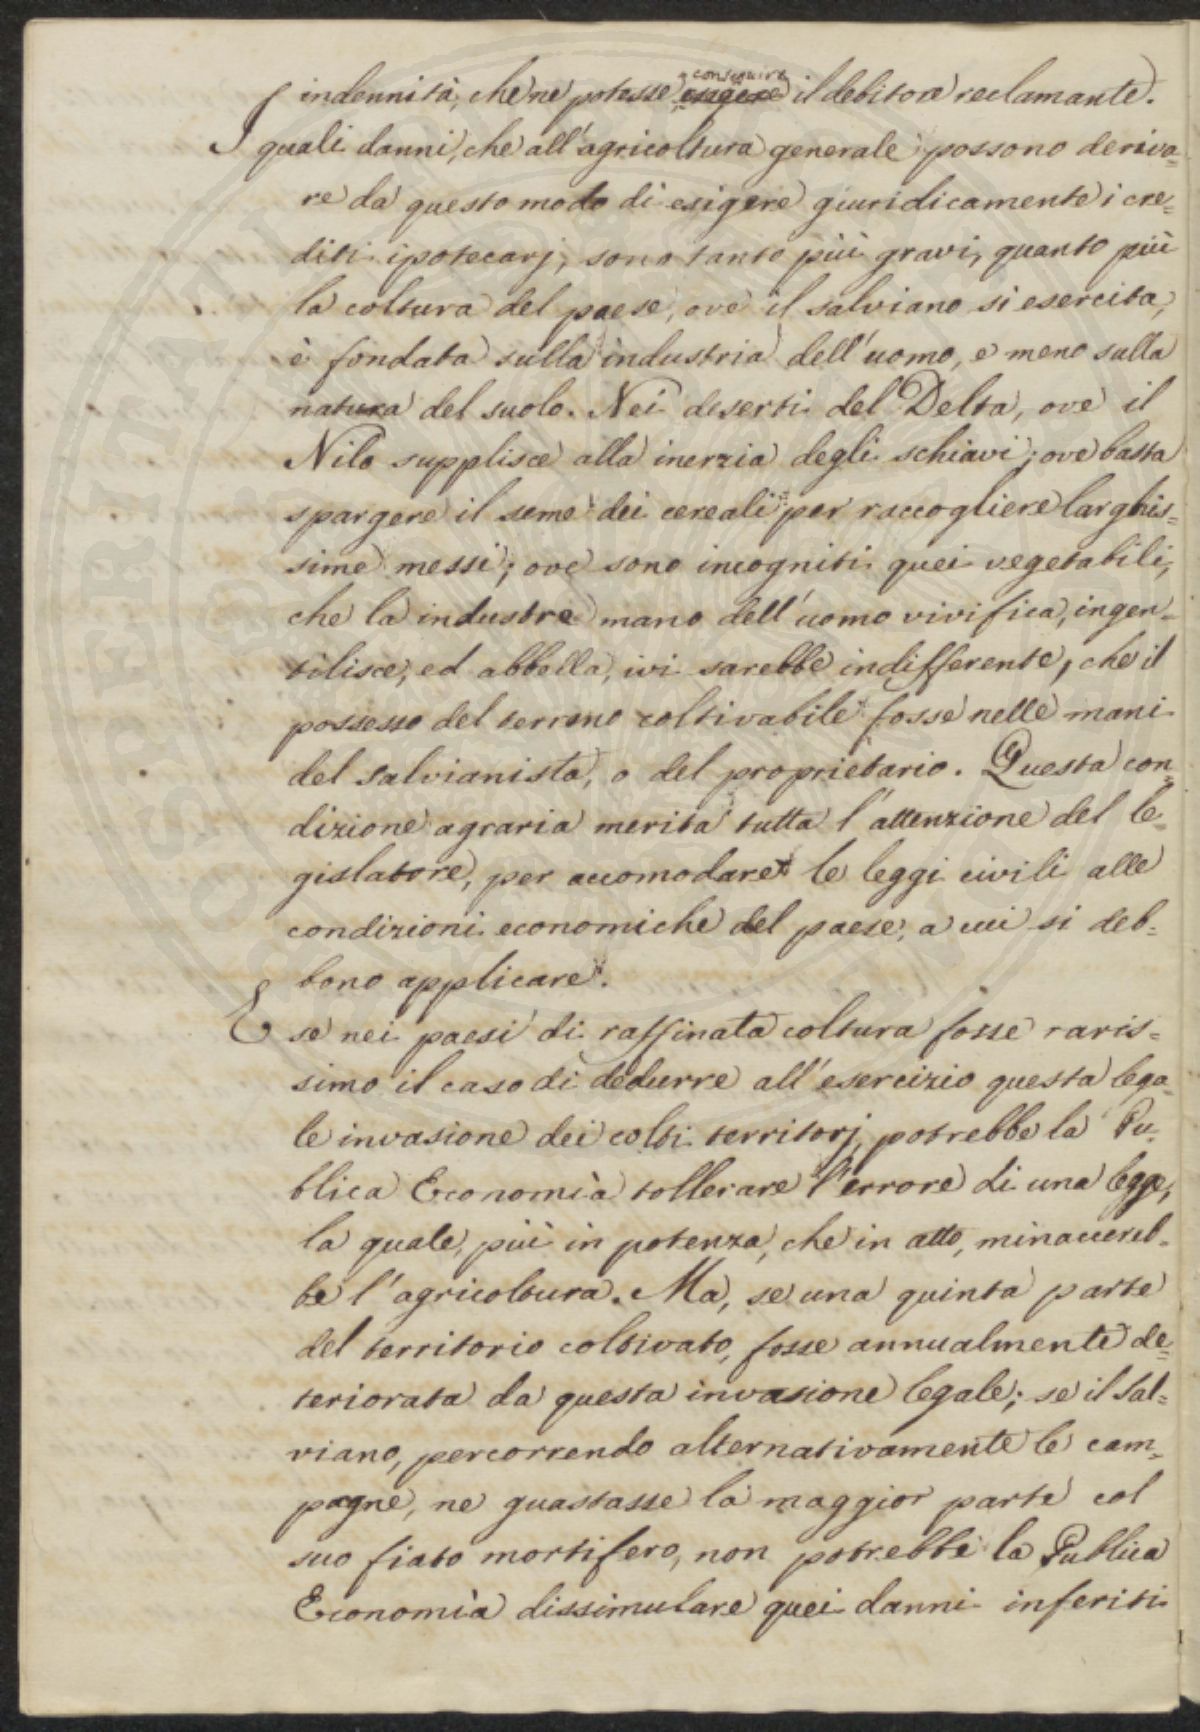 indennità, che ne potesse esigere conseguire il debitore reclamante.
I quali danni, che all'agricoltura generale possono deriva=
re da questo modo di esigere giuridicamente i cre=
diti ipotecarj, sono tanto più gravi, quanto più
la coltura del paese, ove il salviano si esercita,
è fondata sulla industria dell'uomo, e meno sulla
natura del suolo. Nei deserti del Delta, ove il
Nilo supplisce alla inerzia degli schiavi; ove basta
spargere il seme dei cereali per raccogliere larghis=
sime messi; ove sono incogniti quei vegetabili,
che la industre mano dell'uomo vivifica, ingen=
tilisce, ed abbella, ivi sarebbe indifferente, che il
possesso del terreno coltivabile fosse nelle mani
del salvianista, o del proprietario. Questa con=
dizione agraria merita tutta l'attenzione del le=
gislatore, per accomodare le leggi civili alle
condizioni economiche del paese, a cui si deb=
bono applicare.
E se nei paesi di raffinata coltura fosse raris=
simo il caso di dedurre all'esercizio questa lega=
le invasione dei colti territorj, potrebbe la Pu=
blica Economia tollerare l'errore di una legge,
la quale, più in potenza, che in atto, minaccereb=
be l'agricoltura. Ma, se una quinta parte
del territorio coltivato, fosse annualmente de=
teriorata da questa invasione legale; se il Sal=
viano, percorrendo alternativamente le cam=
pagne, ne guastasse la maggior parte col
suo fiato mortifero, non potrebbe la Publica
Economia dissimulare quei danni inferiti